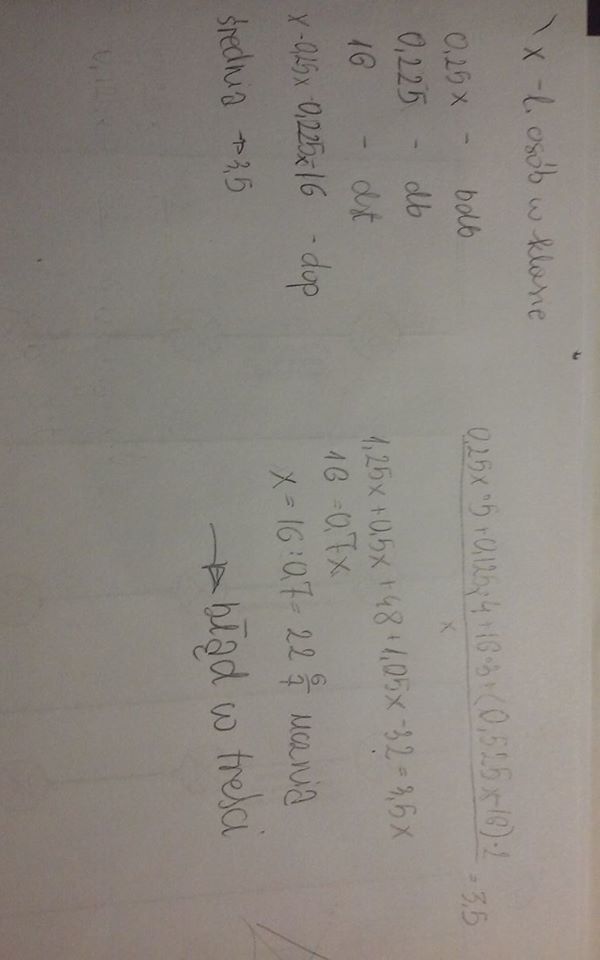 x - l. osób w klasie
0,25x - bdb
0,225 - db
16 - dst
x-0,25x-0,225x-16 - dop
średnia → 3,5
0,25x·5+0,125x·4+16·3+(0,525x-16)·2
x
= 3,5
1,25x+0,5x+48+1,05x-32=3,5x
16 = 0,7x
x = 16:0,7 = 22 6/7 ucznia
→ błąd w treści